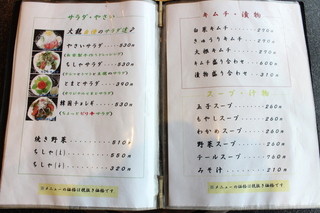 サラダ・やさい
大龍自慢のサラダ達♪
やさいサラダ ･････ 530円
ちしゃサラダ ･････ 530円
とまとサラダ ･････ 530円
韓国チョレギ ･････ 530円
焼き野菜 ･････････ 510円
ちしゃ(L) ･･･････ 550円
ちしゃ(S) ･･･････ 320円
※メニューの価格は税抜き価格です
キムチ・漬物
白菜キムチ
きゅうりキムチ
大根キムチ
キムチ盛り合わせ
漬物盛り合わせ ････ 310円
スープ・汁物
玉子スープ ･･････ 260円
もやしスープ ････ 260円
わかめスープ ････ 260円
野菜スープ ･･････ 260円
テールスープ ････ 760円
みそ汁 ･･････････ 210円
※メニューの価格は税抜き価格です